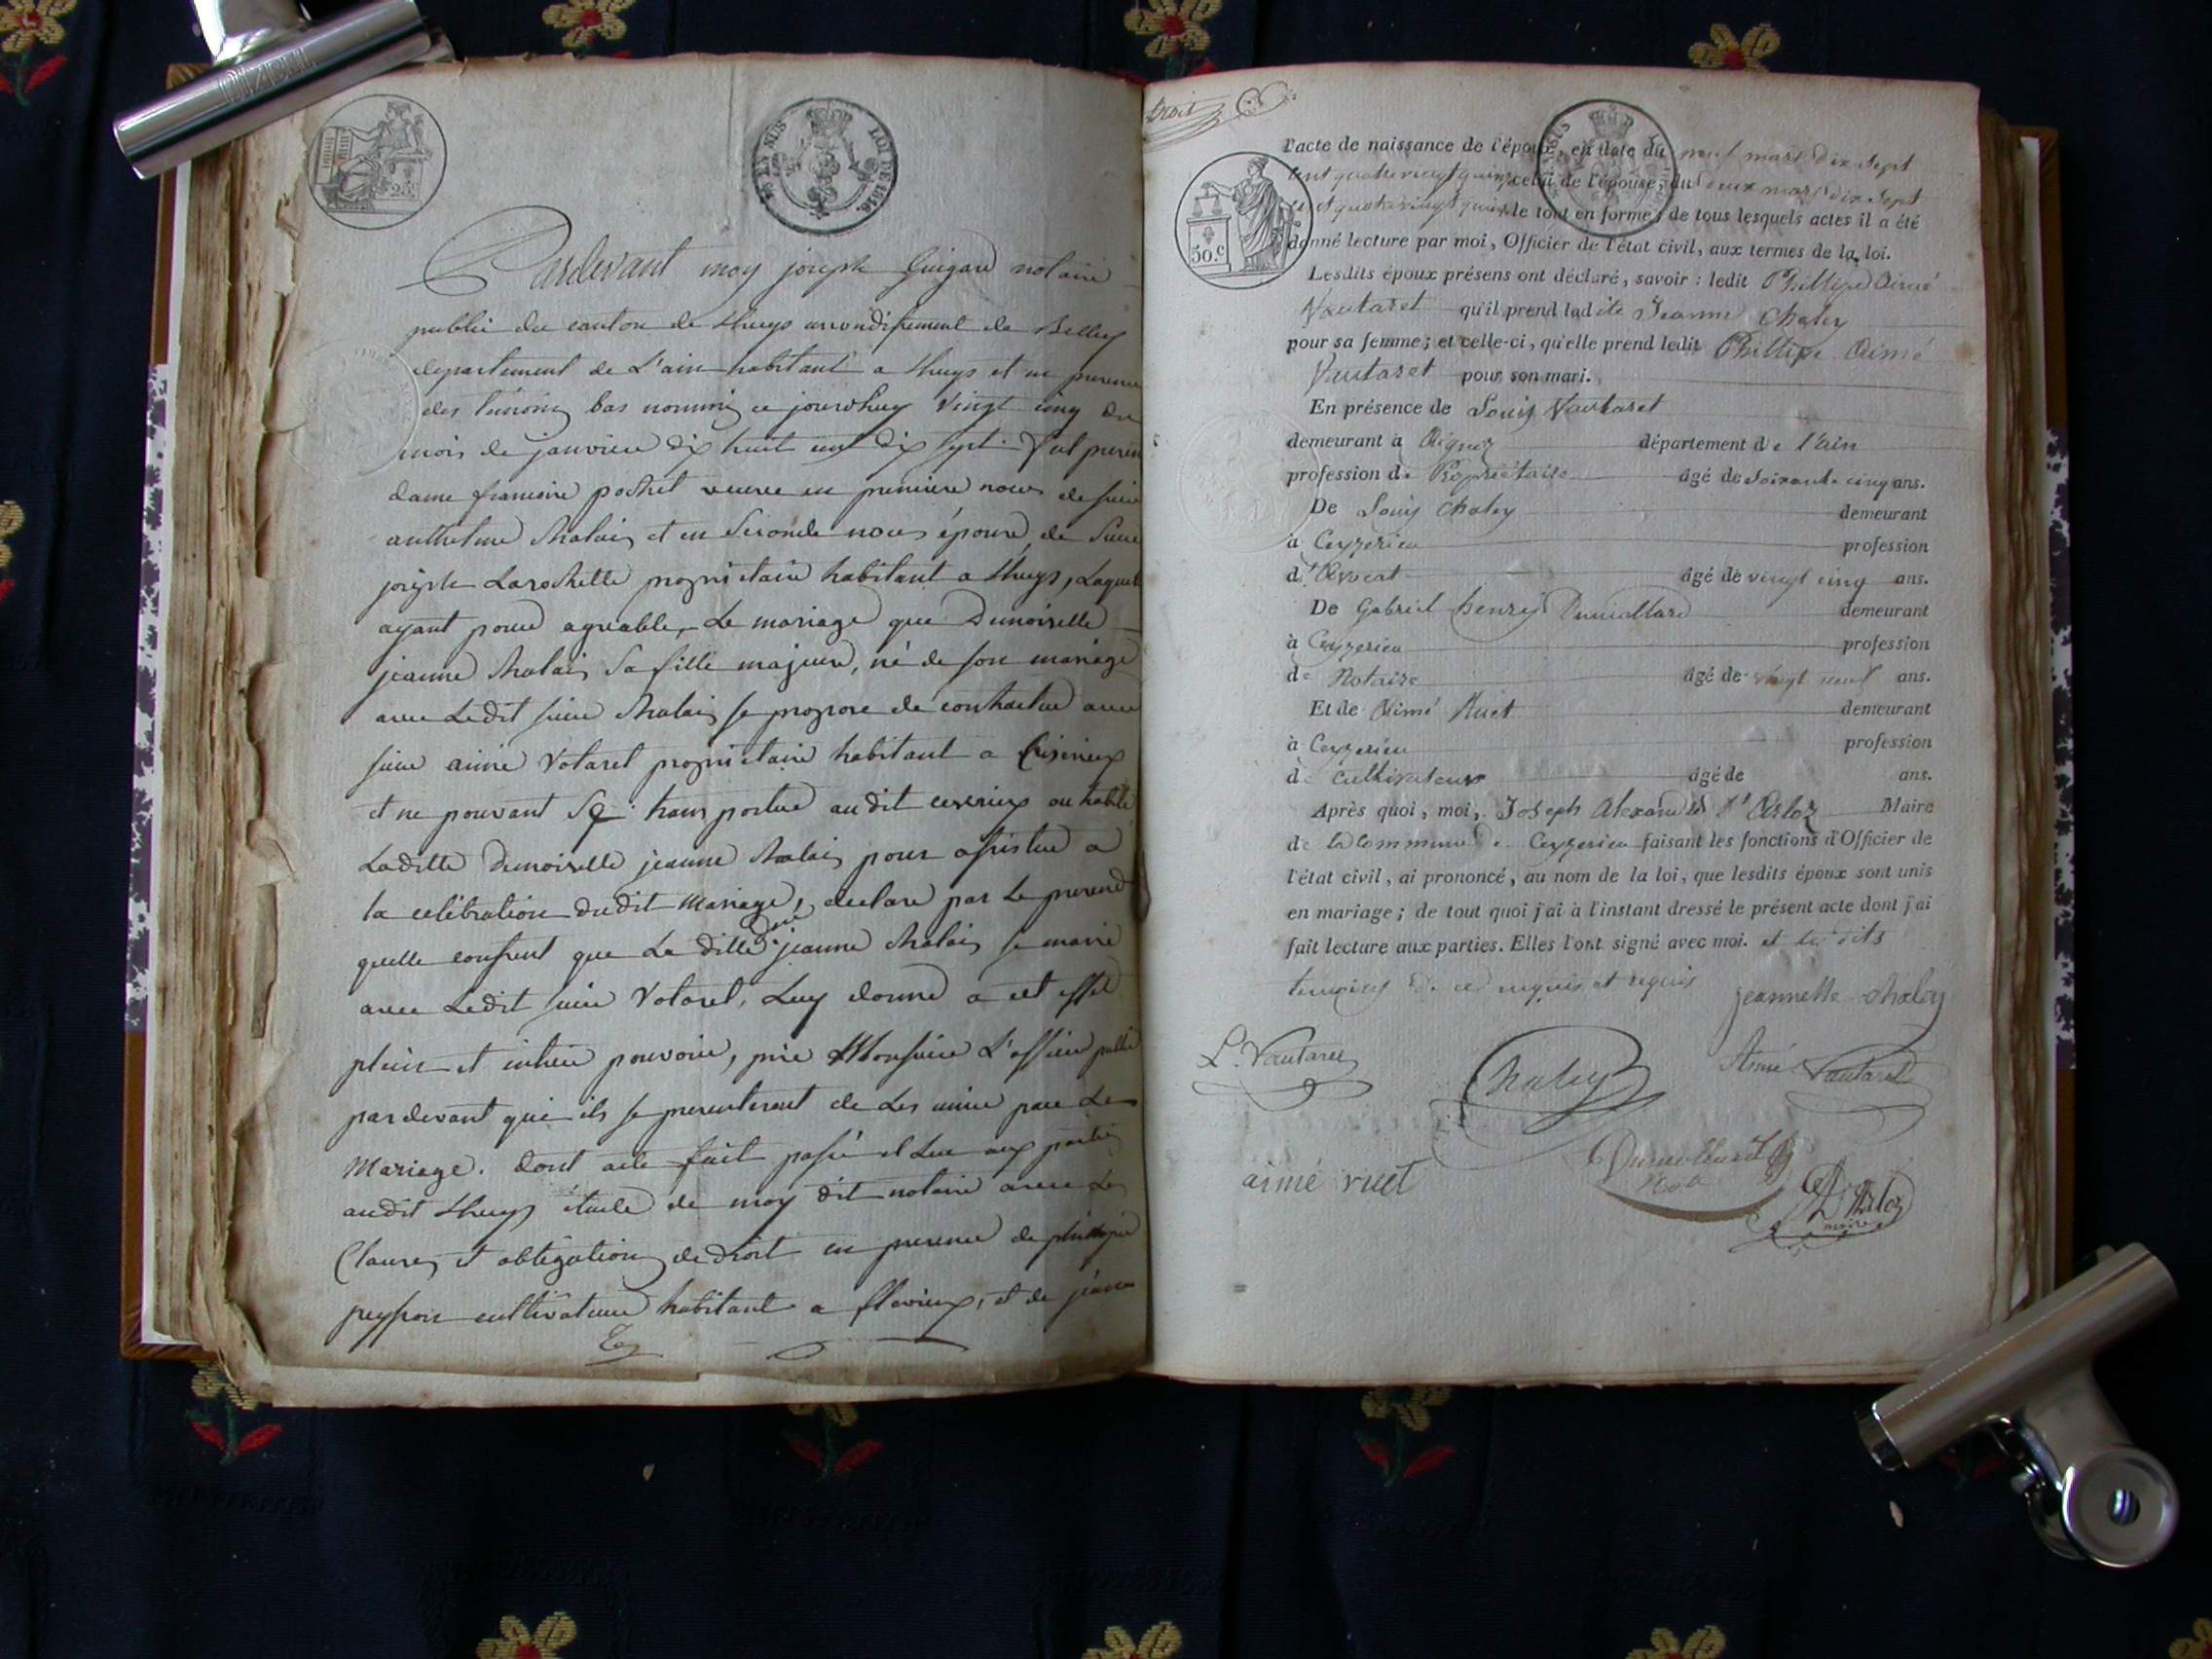 25.c
LOI DE 1816
Pardevant moy joseph Guigard notaire
public du canton de Lhuys arrondissement de Belley
departement de L'ain habitant a Lhuys et en presence
des temoins bas nommé ce jourdhuy vingt cinq du
mois de janvier dix huit cent dix sept. fut presente
dame francoise pochet veuve en premiere noces de sieur
anthelme Chalais et en seconde noces épouse de Sieur
joseph Larochette proprietaire habitant a Lhuys, Laquelle
ayant pour agreable, Le mariage que Demoiselle
jeanne Chalais Sa fille majeure, né de son mariage
avec Ledit sieur Chalais se propose de contracter avec
sieur aimé Votaret proprietaire habitant a
et ne pouvant Se transporter audit ou habite
Laditte Demoiselle jeanne Chalais pour assister a
la celébration dudit Mariage, declare par Le present
quelle consent que La ditte Dlle jeanne Chalais se marie
avec Ledit sieur Votaret, Luy donne a cet effet
plein et entier pouvoir, prie Monsieur L'officier public
pardevant qui ils se presenteront de Les unir par Le
Mariage. Dont acte fait passé et Lu aux parties
audit Lhuys étude de moy dit notaire avec Les
Clauses et obligations de droit en presence de
peysson cultivateur habitant a flevieux, et de
droit
50.c
l'acte de naissance de l'époux, en date du neuf mars dix sept
cent quatre vingt quinze celui de l'épouse, du deux mars dix sept
cent quatre vingt quinze le tout en forme; de tous lesquels actes il a été
donné lecture par moi, Officier de l'état civil, aux termes de la loi.
Lesdits époux présens ont déclaré, savoir : ledit Phillipe Aimé
Vautaret qu'il prend ladite Jeanne Chaley
pour sa femme; et celle-ci, qu'elle prend ledit Phillipe Aimé
Vautaret pour son mari.
En présence de Louis Vautaret
demeurant à Régnez département de l'ain
profession de Propriétaire âgé de Soixante cinq ans.
De Louis Chaley demeurant
à Ceyzerieu profession
d'Avocat âgé de vingt cinq ans.
De Gabriel henry Dumollard demeurant
à Ceyzerieu profession
de Notaire âgé de vingt neuf ans.
Et de Aimé Ruet demeurant
à Ceyzerieu profession
de cultivateur âgé de ans.
Après quoi, moi, Joseph Alexandre D'Arloz Maire
de la Commune de Ceyzerieu faisant les fonctions d'Officier de
l'état civil, ai prononcé, au nom de la loi, que lesdits époux sont unis
en mariage ; de tout quoi j'ai à l'instant dressé le présent acte dont j'ai
fait lecture aux parties. Elles l'ont signé avec moi. et les dits
temoins de ce enquis et requis
jeannette chaley
L. Vautaret
Chaley
Aimé Vautaret
aimé ruet
Dumollard
D'Arloz
maire